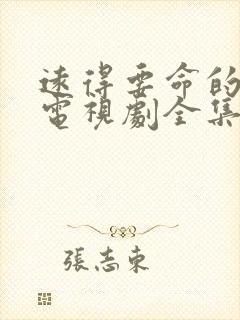 遠得要命的
電視劇全集
張志東